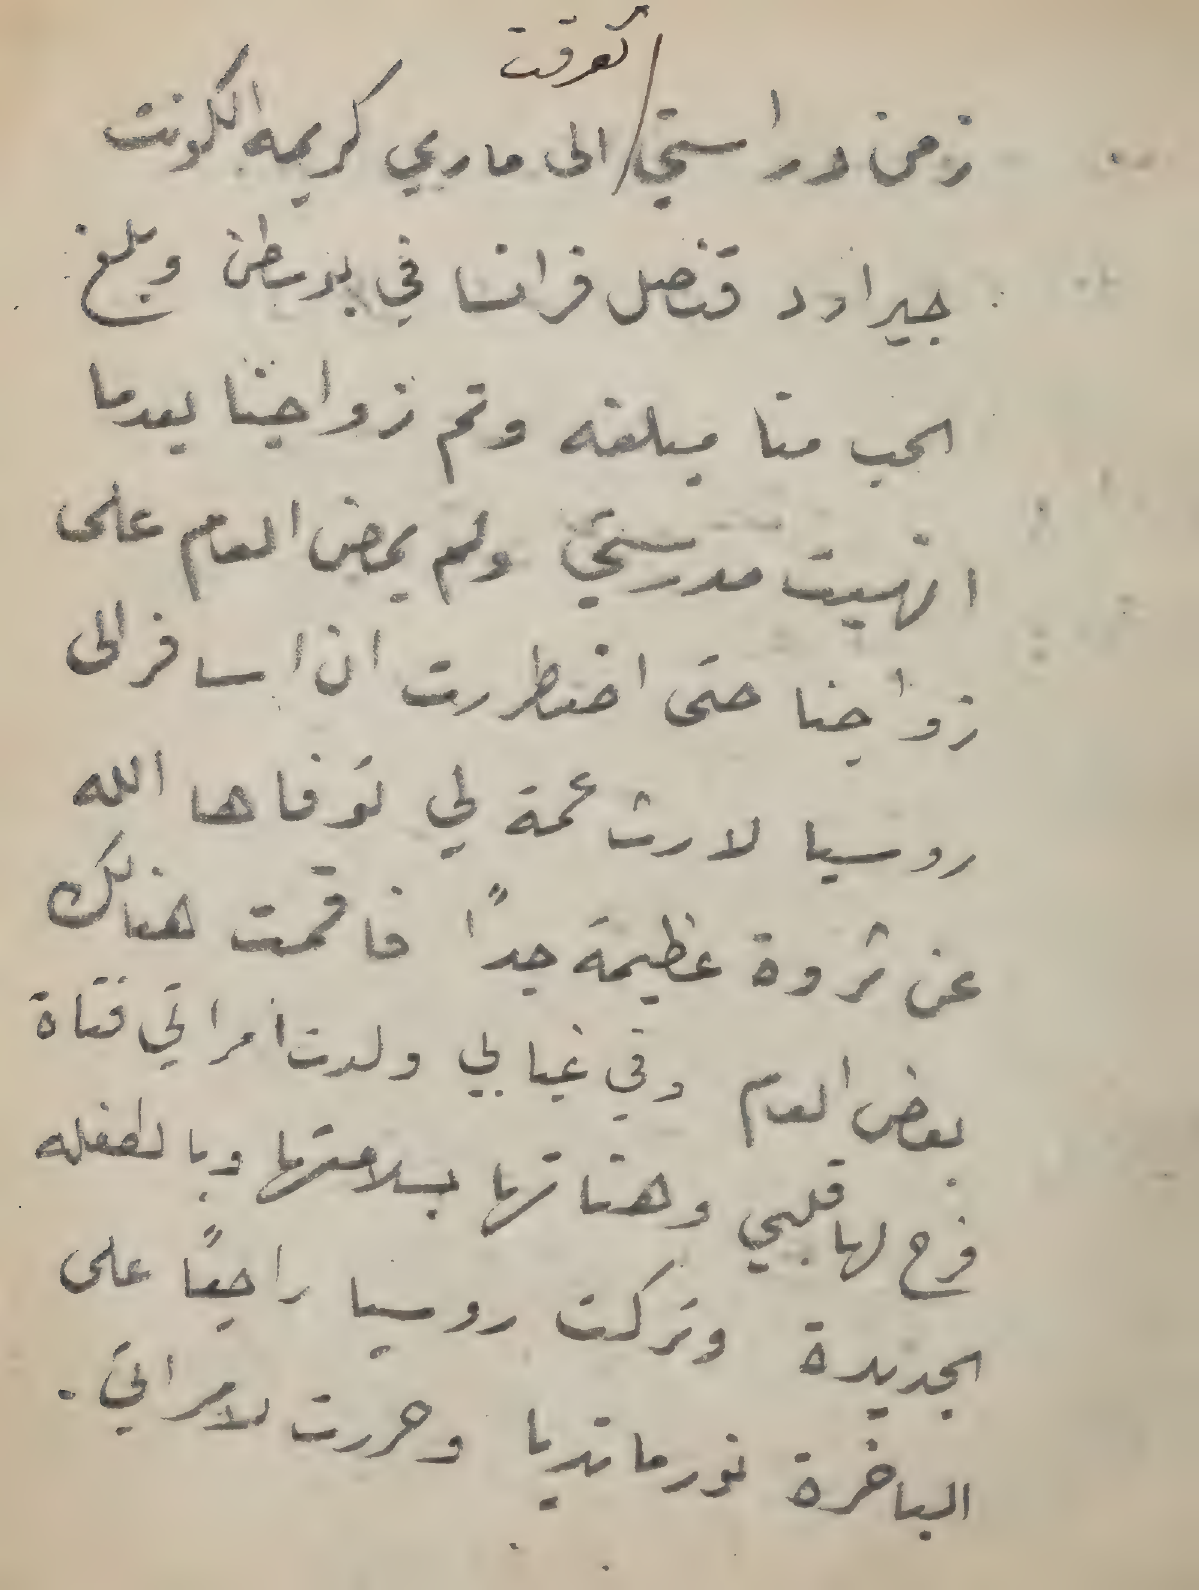 تعرفت
زمن دراستي / الى ماري كريمه الكونت
جيرارد قنصل فرانسا في بوسطن وبلغ
الحب منا مبلغه وتم زواجنا بعدما
انهيت مدرستي ولم يمض العام على
زواجنا حتى اضطررت ان اسافر الى
روسيا لارث عمة لي توفاها الله
عن ثروة عظيمة جداً فاقمت هنالك
بعض العام وفي غيابي ولدت امراتي فتاة
فرح لها قلبي وهناتها بسلامتها وبالطفله
الجديدة وتركت روسيا راجعاً على
الباخرة نورمانديا وحررت لامراتي .